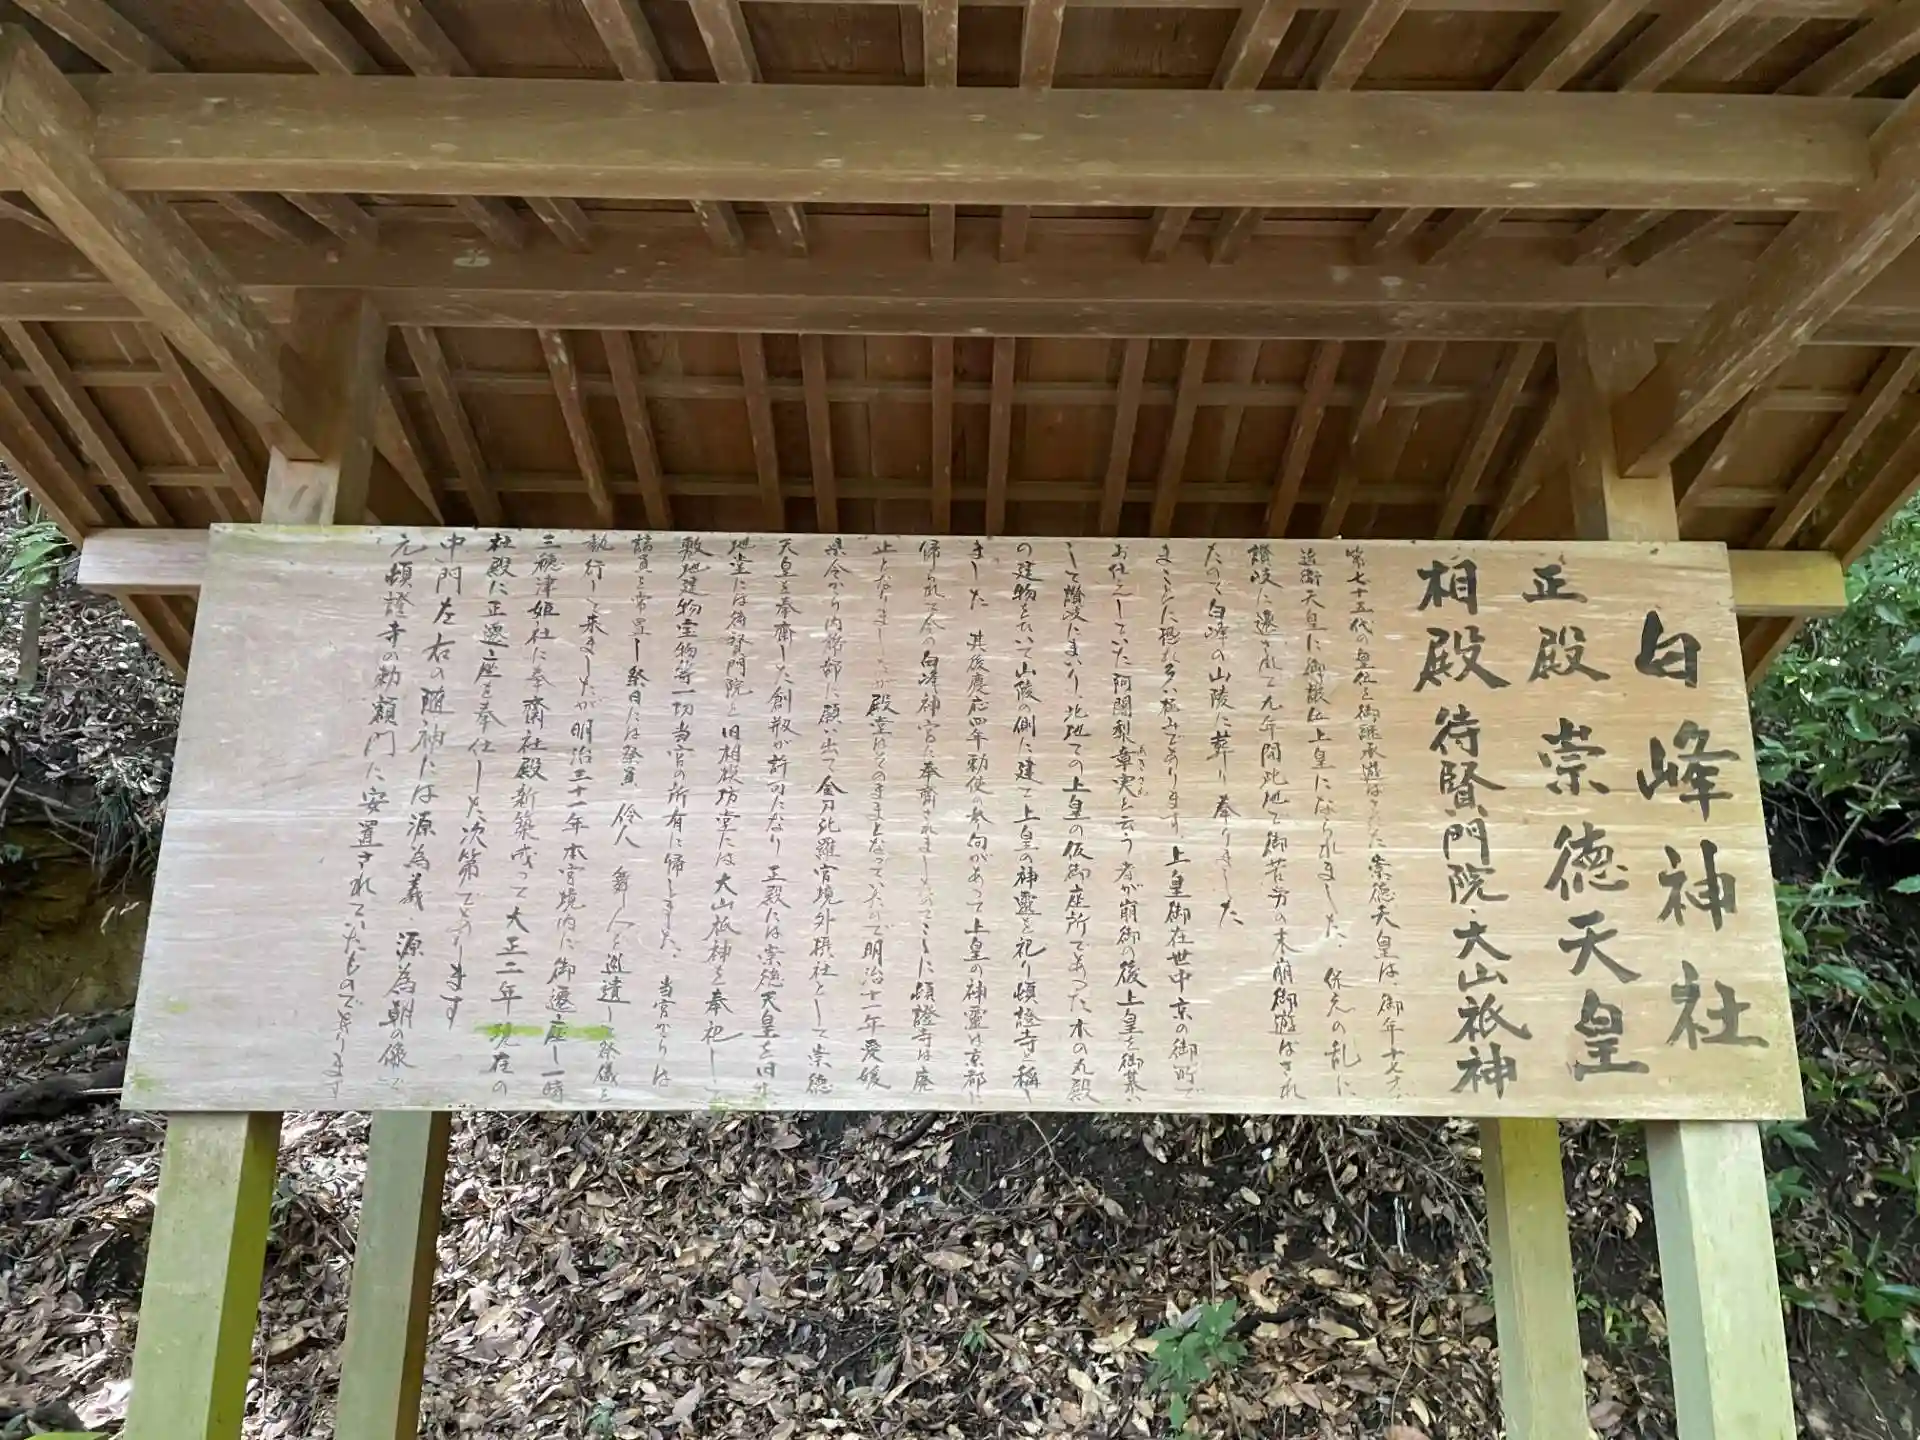 白峰神社
正殿 崇徳天皇
相殿 待賢門院・大山祇神
第七十五代の皇位を御継承遊ばされた崇徳天皇は、御年十七才で
近衛天皇に御譲位上皇になられました、保元の乱に
讃岐に遷されて九年間此地で御苦労の末崩御遊ばされ
たので白峰の山陵に葬り奉りました
まことに恐れ多い極みであります、上皇御在世中京の御所で
お仕えしていた阿闍梨章実と云う者が崩御の後上皇を御慕い
して讃岐にまいり、此地での上皇の仮御座所であった木の丸殿
の建物をひいて山陵の側に建て上皇の神霊を祀り頓證寺と称し
ました 其後慶応四年勅使の参向があって上皇の神霊は京都に
帰られて今の白峰神宮に奉斎されましたのでここに頓證寺は廃
止となりましたが殿堂はそのままとなっていたので明治十一年愛媛
県令から内務部に願い出て金刀比羅宮境外摂社として崇徳
天皇を奉斎した創祀が許可になり 正殿には崇徳天皇を旧
地堂には待賢門院と旧相模坊堂には大山祇神を奉祀し
敷地建物宝物等一切当宮の所有に帰しました、当宮からは
諸員を常置し祭日には祭員 伶人 舞人を派遣し祭儀を
執行して来ましたが明治三十一年本宮境内に御遷座し一時
三穂津姫社に奉斎社殿新築成って大正二年現在の
社殿に正遷座を奉仕した次第であります
中門左右の随神には源為義・源為朝の像で
元頓證寺の勅額門に安置されていたものであります